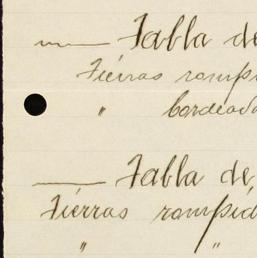 Tabla de
Tierras rompid
" bordeada
Tabla de
Tierras rompid
" "